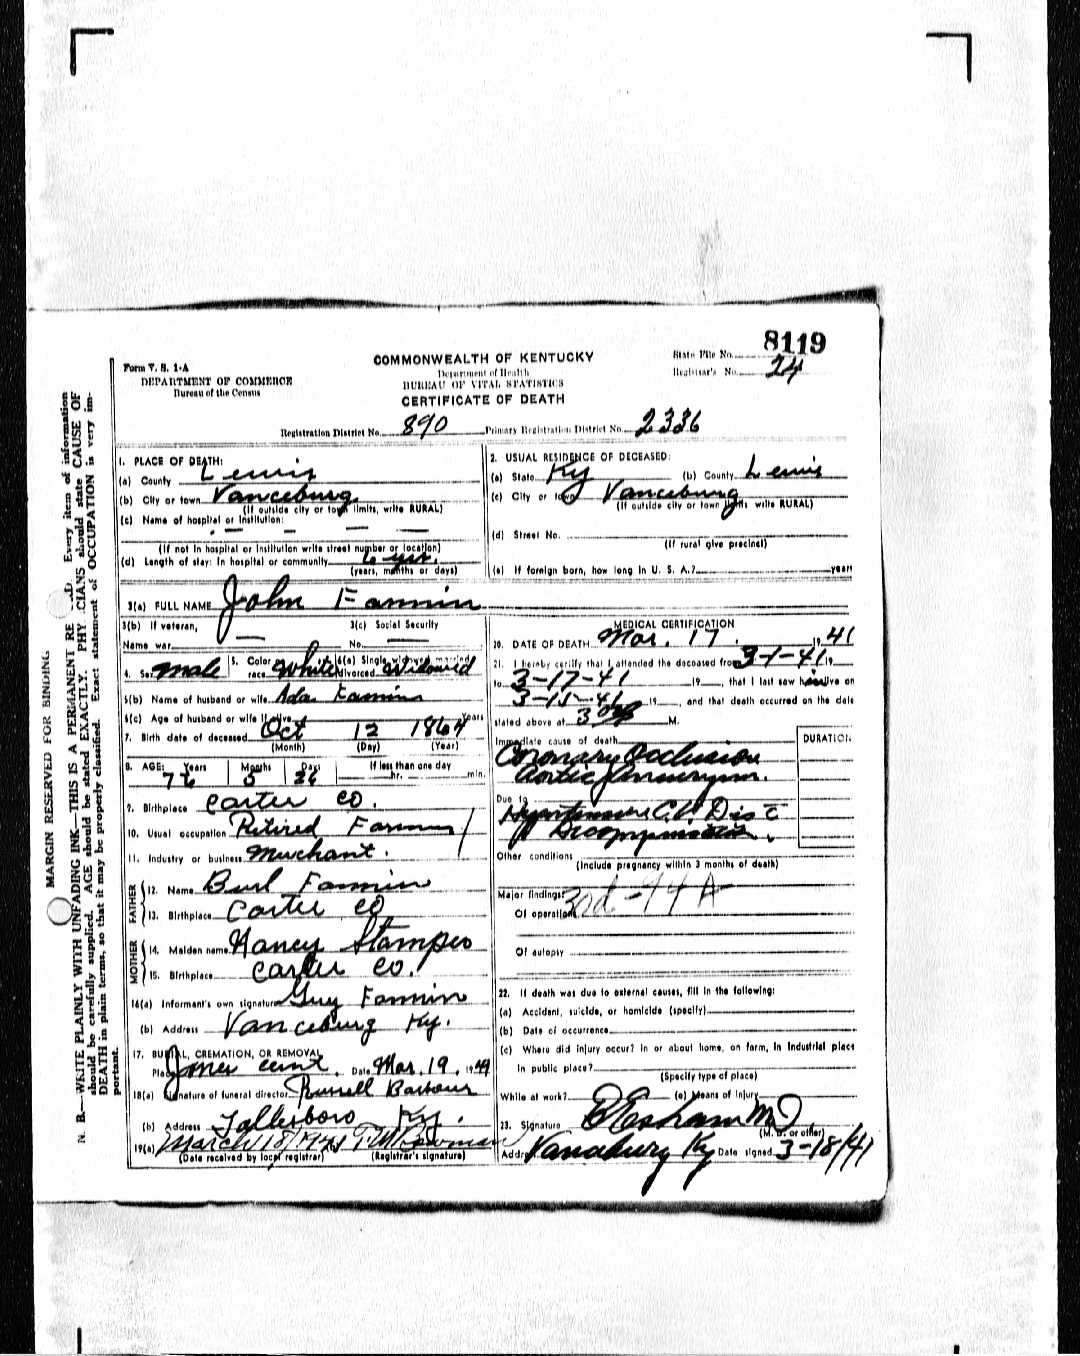 8119
State File No.
Registrar's No. 24
Form V. S. 1-A
DEPARTMENT OF COMMERCE
Bureau of the Census
COMMONWEALTH OF KENTUCKY
Department of Health
BUREAU OF VITAL STATISTICS
CERTIFICATE OF DEATH
Registration District No. 890 Primary Registration District No. 2336
1. PLACE OF DEATH:
(a) County Lewis
(b) City or town Vanceburg
(If outside city or town limits, write RURAL)
(c) Name of hospital or institution:
— — —
(If not in hospital or institution write street number or location)
(d) Length of stay: In hospital or community 6 yrs.
(years, months or days)
2. USUAL RESIDENCE OF DECEASED:
(a) State Ky (b) County Lewis
(c) City or town Vanceburg
(If outside city or town limits write RURAL)
(d) Street No.
(If rural give precinct)
(e) If foreign born, how long in U. S. A.? years
3(a) FULL NAME John Fannin
3(b) If veteran, 3(c) Social Security
Name war — No. —
4. Sex Male 5. Color race White 6(a) Single, widowed, married divorced Widowed
6(b) Name of husband or wife Ada Fannin
6(c) Age of husband or wife if alive years
7. Birth date of deceased Oct 12 1864
(Month) (Day) (Year)
8. AGE: Years Months Days If less than one day
76 5 hr. min.
9. Birthplace Carter Co.
10. Usual occupation Retired Farmer
11. Industry or business Merchant.
FATHER
12. Name Burl Fannin
13. Birthplace Carter Co
MOTHER
14. Maiden name Nancy Stamper
15. Birthplace Carter Co.
16(a) Informant's own signature Guy Fannin
(b) Address Vanceburg Ky.
17. BURIAL, CREMATION, OR REMOVAL
Place Jones Cemt. Date Mar. 19, 19
18(a) Signature of funeral director Russell Barbour
(b) Address Tollesboro Ky.
19(a) March 18 1941 T. M. Bowman
(Date received by local registrar) (Registrar's signature)
MEDICAL CERTIFICATION
20. DATE OF DEATH Mar. 17. 1941
21. I hereby certify that I attended the deceased from 3-1-41 19
to 3-17-41 19, that I last saw him alive on
3-15-41 19, and that death occurred on the date
stated above at 3 M.
Immediate cause of death
DURATION
Coronary Occlusion
Aortic Aneurysm.
Due to
Hypertensive C.V. Dis c̄
Decompensation.
Other conditions
(Include pregnancy within 3 months of death)
Major findings:
Of operation
3rd-94A
Of autopsy
22. If death was due to external causes, fill in the following:
(a) Accident, suicide, or homicide (specify)
(b) Date of occurrence
(c) Where did injury occur? In or about home, on farm, in industrial place
In public place?
(Specify type of place)
While at work? (e) Means of injury
23. Signature Esham MD
(M. D. or other)
Address Vanceburg Ky Date signed 3-18/41
MARGIN RESERVED FOR BINDING
N. B.—WRITE PLAINLY WITH UNFADING INK—THIS IS A PERMANENT RE D. Every item of information
should be carefully supplied. AGE should be stated EXACTLY. PHY CIANS should state CAUSE OF
DEATH in plain terms, so that it may be properly classified. Exact statement of OCCUPATION is very im-
portant.